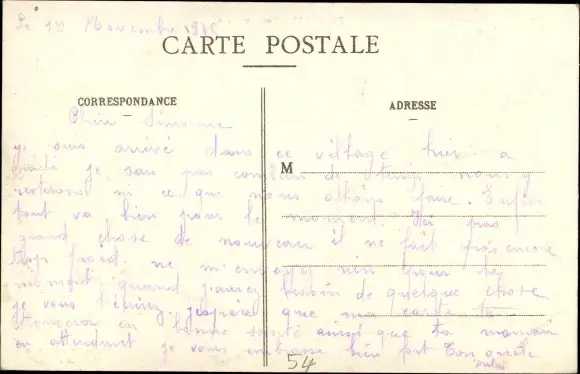 Le 1er Novembre
CARTE POSTALE
CORRESPONDANCE
ADRESSE
Chère Simonne
suis arrivé dans ce village hier a
midi je sais pas combien de temps nous y
resterons ni ce que nous allons faire. Enfin
tout va bien pour le moment. Ici pas
quand chose de nouveau il ne fait pas encore
trop froid. ne m'envoyez rien pour le
moment quand j'aurez besoin de quelque chose
je vous l'écrirez j'espère que ma carte te
trouvera en bonne santé ainsi que ta maman
en attendant je vous embrasse bien fort Ton
M
54